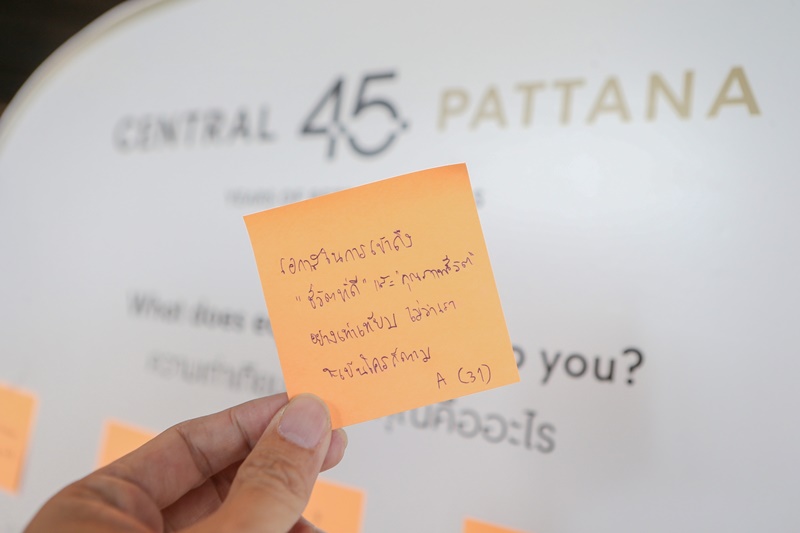 CENTRAL 45 PATTANA
โอกาสในการเข้าถึง
"ชีวิตที่ดี" และ "คุณภาพชีวิต"
อย่างเท่าเทียม ไม่ว่าเรา
จะเป็นใครก็ตาม
A (31)
What does e
o you?
ความเท่าเทีย
คืออะไร